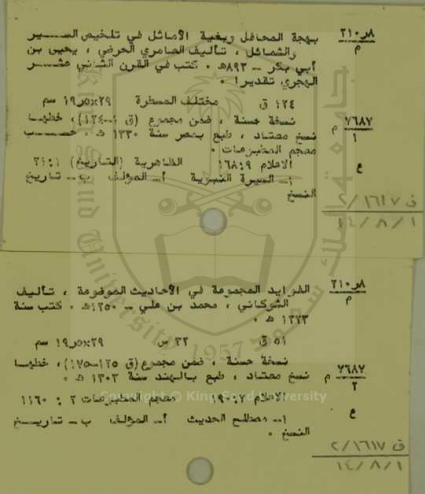 ٢١٠٫٨ بهجة المحافل وبغية الأماثل في تلخيص السير
م والشمائل ، تأليف العامري الحرضي ، يحيى بن
أبي بكر - ٨٩٣هـ ٠ كتب في القرن الثاني عشر
الهجري تقديرا ٠
١٢٤ ق مختلف المسطرة ٢٩×١٩٫٥ سم
٧٦٨٧ نسخة حسنة ، ضمن مجموع (ق ١-١٢٤) ، خطها
١ م نسخ معتاد ، طبع بمصر سنة ١٣٣٠ هـ ٠ حسب
معجم المطبوعات ٠
ع الاعلام ٩ : ١٦٨ الظاهرية (التاريخ)
١- السيرة النبوية أ- المؤلف ب- تاريخ
النسخ
ف ١٦١٧ / ٢
١ / ٨ / ١٤
٢١٠٫٨ الفوايد المجموعة في الأحاديث الموضوعة ، تأليف
م الشوكاني ، محمد بن علي - ١٢٥٠هـ ٠ كتب سنة
١٢٧٣ هـ ٠
٥١ ق ٣٣ س ٢٩×١٩٫٥ سم
نسخة حسنة ، ضمن مجموع (ق ١٢٥-١٧٥) ، خطها
٧٦٨٧ م نسخ معتاد ، طبع بالهند سنة ١٣٠٣ هـ ٠
٢ الاعلام ٧ : ١٩٠ معجم المطبوعات ٢ : ١١٦٠
ع ١- مصطلح الحديث أ- المؤلف ب- تاريخ
النسخ ٠
ف ١٦١٧ / ٢
١ / ٨ / ١٤
King Saud University
1957
Copyright © King Saud University